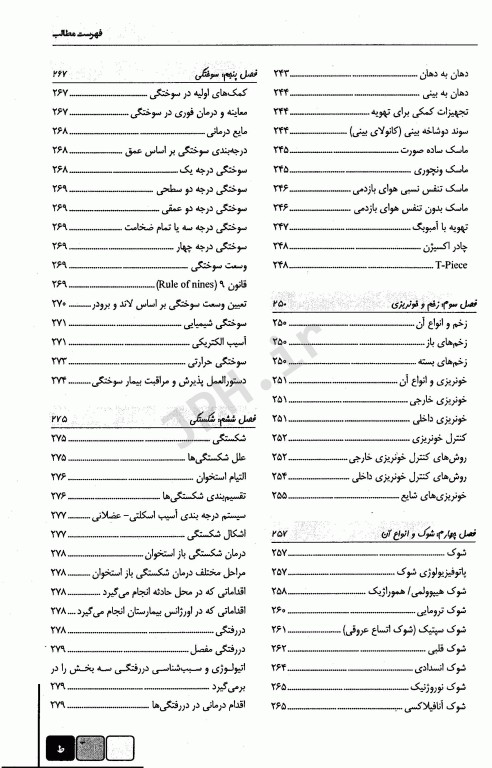 فهرست مطالب
دهان به دهان ۲۴۳
دهان به بینی ۲۴۴
تجهیزات کمکی برای تهویه ۲۴۴
سوند دوشاخه بینی (کانولای بینی) ۲۴۴
ماسک ساده صورت ۲۴۵
ماسک ونچوری ۲۴۵
ماسک تنفس نسبی هوای بازدمی ۲۴۶
ماسک بدون تنفس هوای بازدمی ۲۴۶
تهویه با آمبوبگ ۲۴۷
چادر اکسیژن ۲۴۸
T-Piece ۲۴۸
فصل سوم: زخم و خونریزی ۲۵۰
زخم و انواع آن ۲۵۰
زخم‌های باز ۲۵۰
زخم‌های بسته ۲۵۰
خونریزی و انواع آن ۲۵۱
خونریزی خارجی ۲۵۱
خونریزی داخلی ۲۵۱
کنترل خونریزی ۲۵۲
روش‌های کنترل خونریزی خارجی ۲۵۲
روش‌های کنترل خونریزی داخلی ۲۵۴
خونریزی‌های شایع ۲۵۵
فصل چهارم: شوک و انواع آن ۲۵۷
شوک ۲۵۷
پاتوفیزیولوژی شوک ۲۵۷
شوک هیپوولمی/ هموراژیک ۲۵۸
شوک ترومایی ۲۶۰
شوک سپتیک (شوک اتساع عروقی) ۲۶۱
شوک قلبی ۲۶۲
شوک انسدادی ۲۶۴
شوک نوروژنیک ۲۶۵
شوک آنافیلاکسی ۲۶۵
فصل پنجم: سوختگی ۲۶۷
کمک‌های اولیه در سوختگی ۲۶۷
معاینه و درمان فوری در سوختگی ۲۶۷
مایع درمانی ۲۶۸
درجه‌بندی سوختگی بر اساس عمق ۲۶۸
سوختگی درجه یک ۲۶۸
سوختگی درجه دو سطحی ۲۶۹
سوختگی درجه دو عمقی ۲۶۹
سوختگی درجه سه یا تمام ضخامت ۲۶۹
سوختگی درجه چهار ۲۶۹
وسعت سوختگی ۲۶۹
قانون ۹ (Rule of nines) ۲۶۹
تعیین وسعت سوختگی بر اساس لاند و برودر ۲۷۰
سوختگی شیمیایی ۲۷۱
آسیب الکتریکی ۲۷۱
سوختگی حرارتی ۲۷۳
دستورالعمل پذیرش و مراقبت بیمار سوختگی ۲۷۴
فصل ششم: شکستگی ۲۷۵
شکستگی ۲۷۵
علل شکستگی‌ها ۲۷۵
التیام استخوان ۲۷۶
تقسیم‌بندی شکستگی‌ها ۲۷۶
سیستم درجه بندی آسیب اسکلتی- عضلانی ۲۷۷
اشکال شکستگی ۲۷۷
درمان شکستگی باز استخوان ۲۷۸
مراحل مختلف درمان شکستگی باز استخوان ۲۷۸
اقداماتی که در محل حادثه انجام می‌گیرد ۲۷۸
اقداماتی که در اورژانس بیمارستان انجام می‌گیرد ۲۷۸
دررفتگی ۲۷۸
دررفتگی مفصل ۲۷۹
اتیولوژی و سبب‌شناسی دررفتگی سه بخش را در
برمی‌گیرد ۲۷۹
اقدام درمانی در دررفتگی‌ها ۲۷۹
ط
JPH.ir